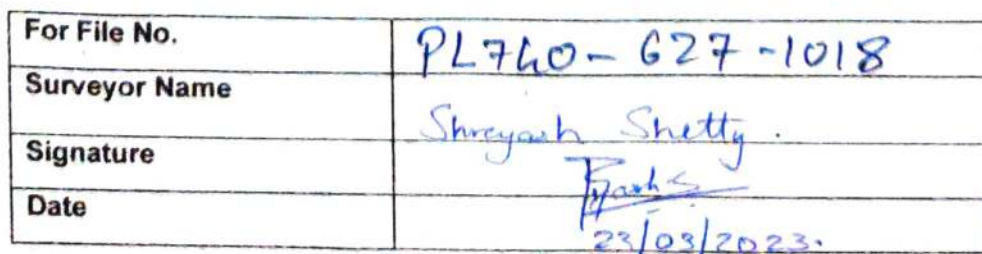 For File No. PL740-627-1018
Surveyor Name Shreyash Shetty.
Signature
Date 23/03/2023.